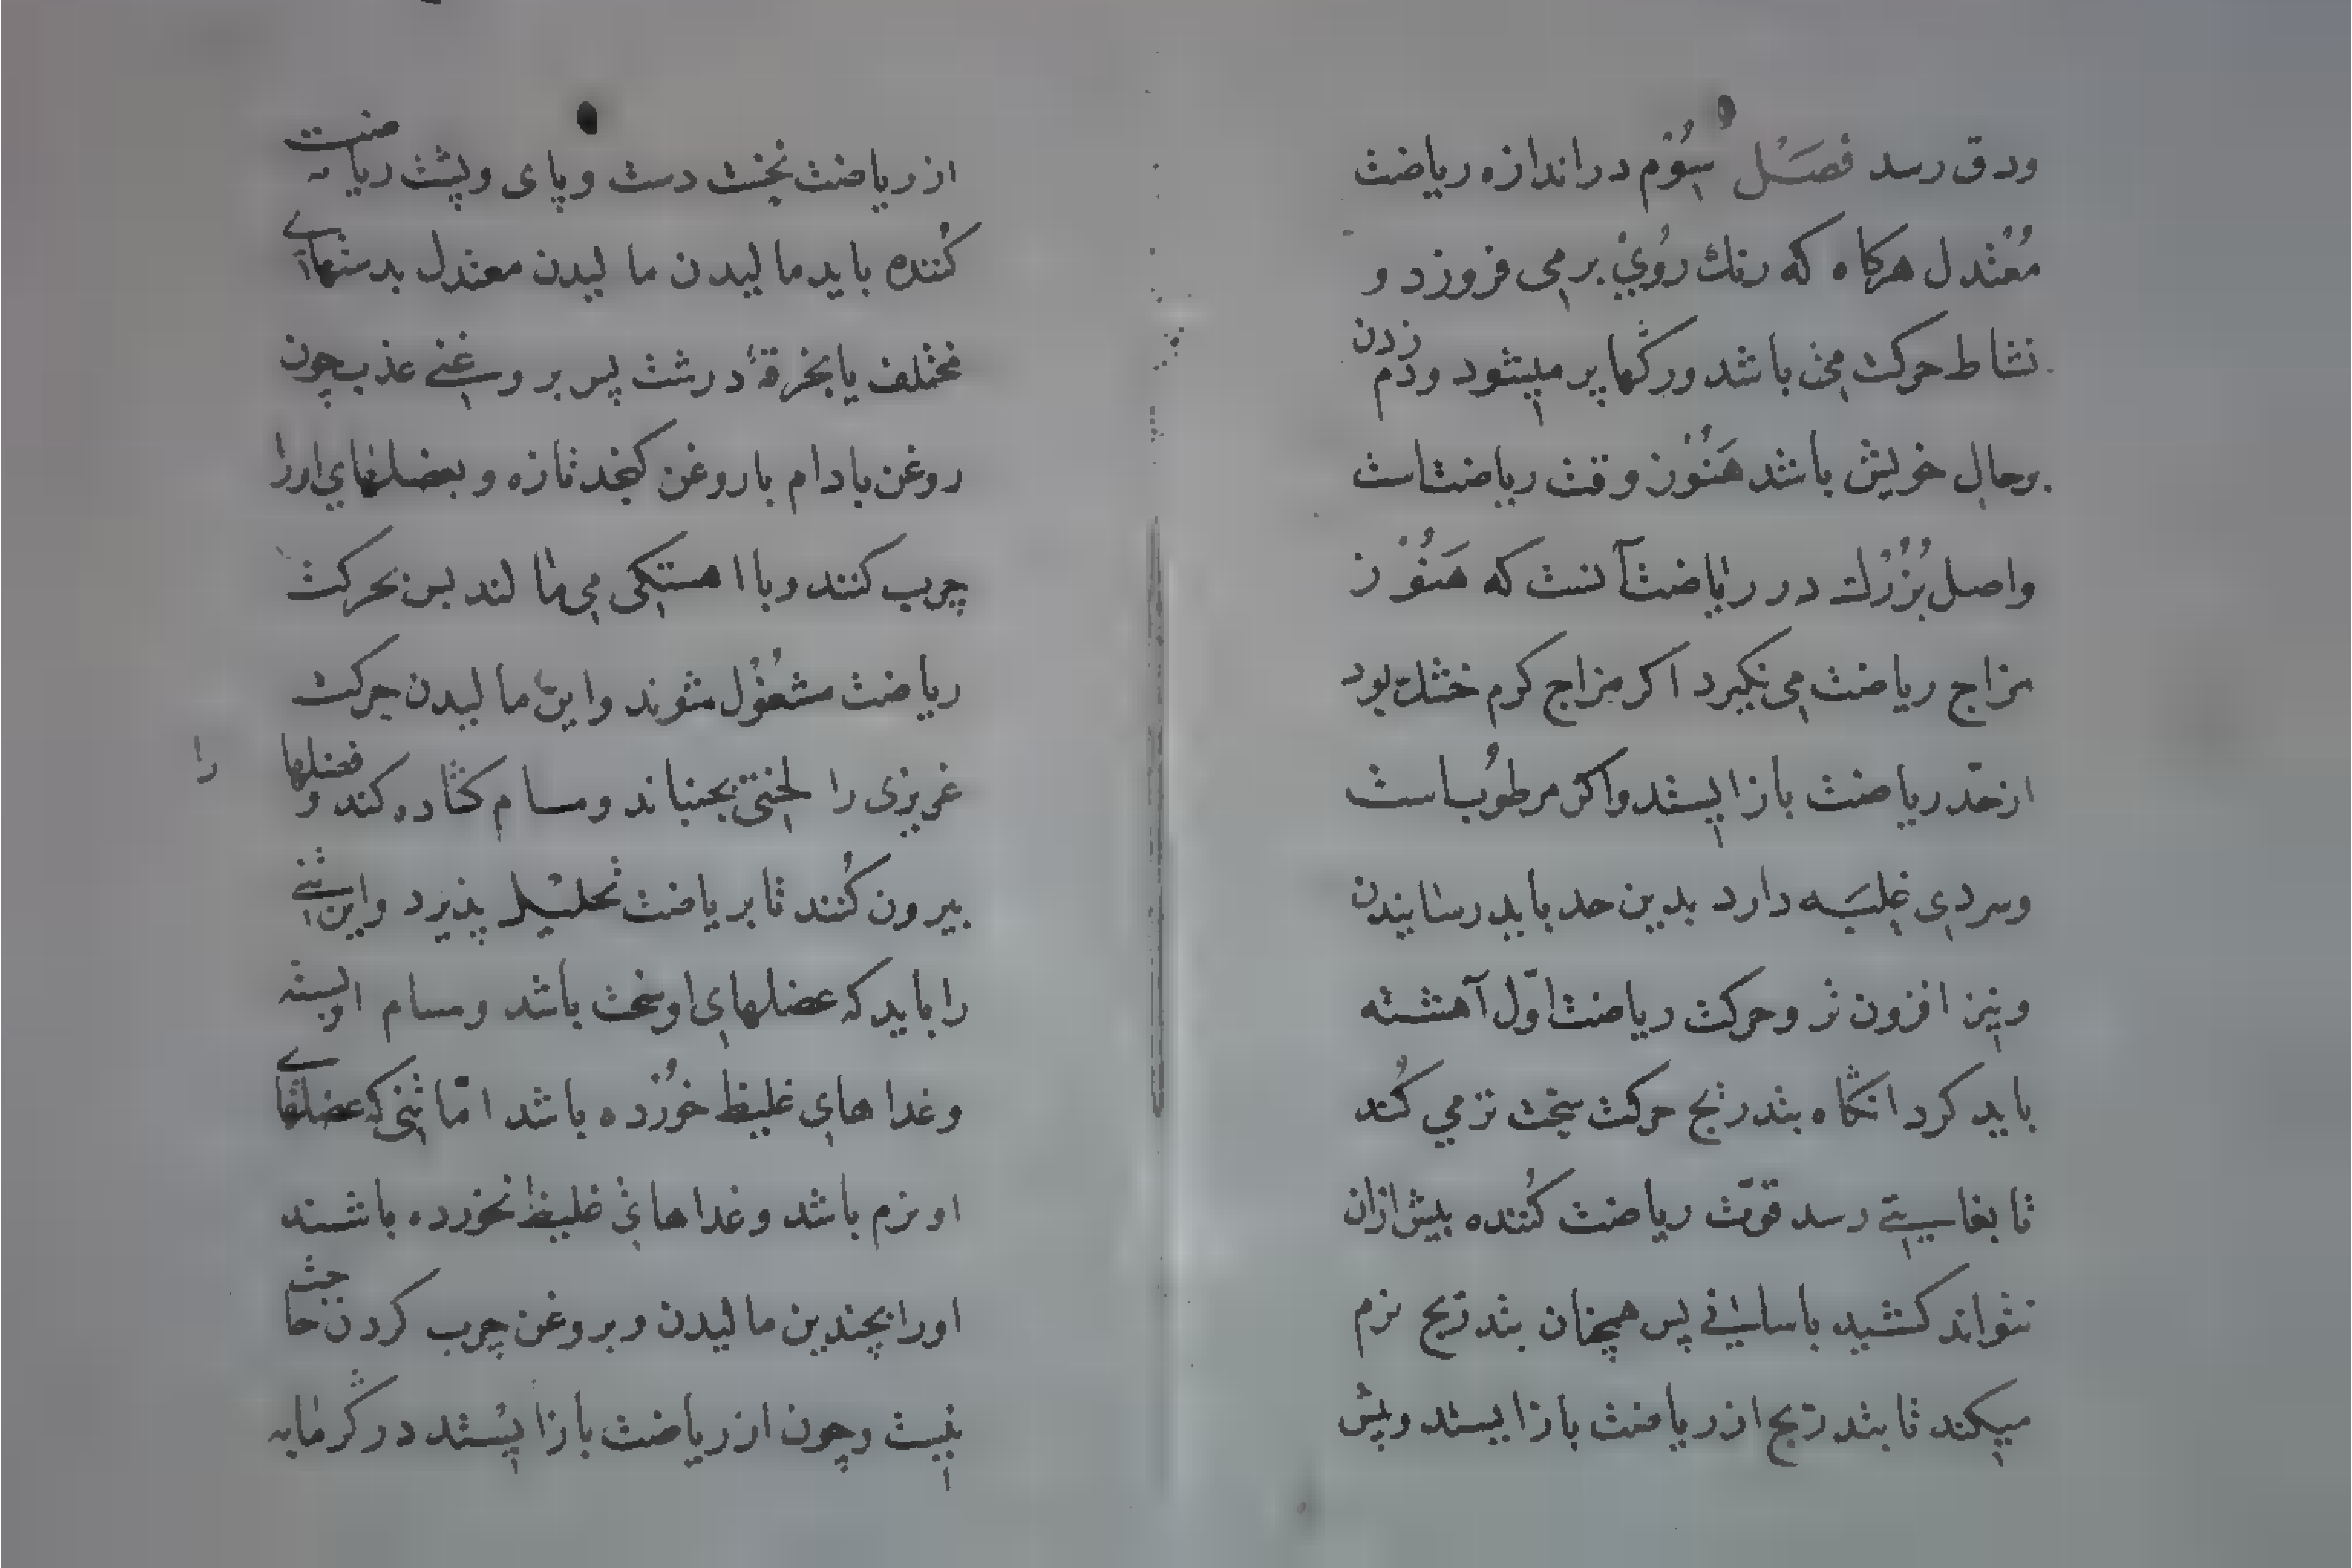 ودق رسد فصل سوم در اندازه ریاضت
معتدل هرکاه که رنک روی بر می فروزد و
نشاط حرکت می باشد ورکها پر میشود ودم زدن
برحال خویش باشد هنوز وقت ریاضت است
واصل بزرک در ریاضت آنست که هنوز
مزاج ریاضت می نکیرد اکر مزاج کرم خشک بود
از حد ریاضت باز ایستد واکر مرطوب است
وسردی غلبه دارد بدین حد باید رسانیدن
ونیز افزون تر وحرکت ریاضت اول آهسته
باید کرد انکاه بتدریج حرکت سخت تر می کند
تا بغایتی رسد قوت ریاضت کننده بیش ازان
نتواند کشید باسانی پس همچنان بتدریج نرم
میکند تا بتدریج از ریاضت باز ایستد وپیش
از ریاضت نخست دست وپای وپشت ریاضت
کننده باید مالیدن مالیدن معتدل بدستهای
مختلف یا بخرقه درشت پس بروغنی عذب چون
روغن بادام یا روغن کنجد تازه و بعضلهای اورا
چرب کنند وبا اهستکی می مالند پس بحرکت
ریاضت مشغول شوند واین مالیدن حرکت
غریزی را لختی بجنباند ومسام کشاده کند و فضلها را
بیرون کنند تا بریاضت تحلیل پذیرد واین تنی
را باید که عضلهای او سخت باشد ومسام او بسته
وغداهای غلیظ خورده باشد اما تنی که عضلهای
او نرم باشد وغداهای غلیظ نخورده باشند
اورا بچندین مالیدن وبروغن چرب کردن حاجت
نیست وچون از ریاضت باز ایستد در کرمابه